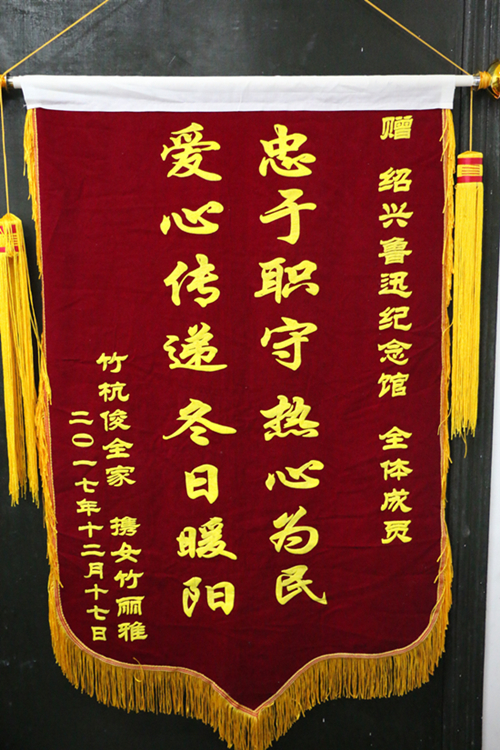 赠 绍兴鲁迅纪念馆 全体成员
忠于职守 热心为民
爱心传递 冬日暖阳
竹杭俊全家 携女竹丽雅
二〇一七年十二月十七日